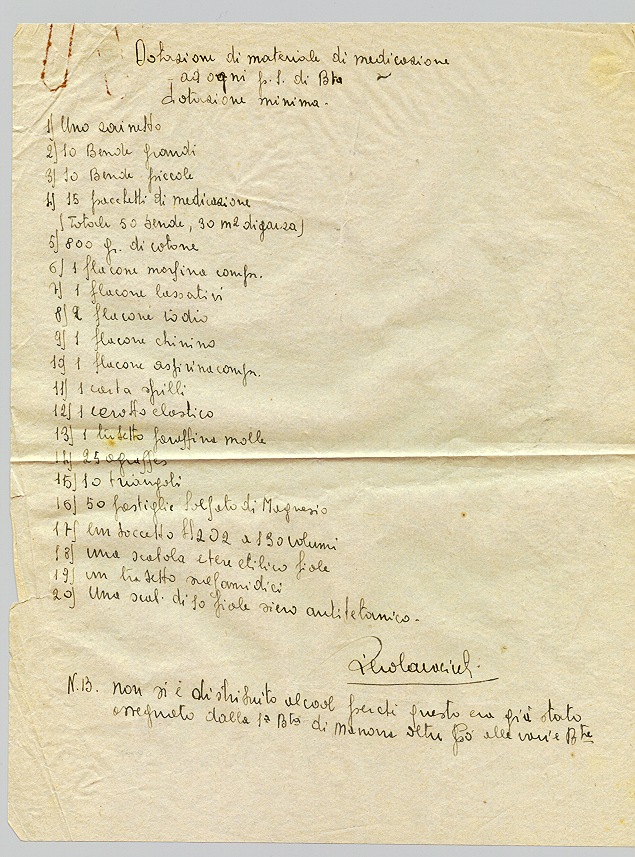 Dotazione di materiale di medicazione
ad ogni p.S. di Bta
dotazione minima.
1) Uno zainetto
2) 10 Bende grandi
3) 10 Bende piccole
4) 15 pacchetti di medicazione
(Totale 50 bende, 30 m2 di garza)
5) 800 gr. di cotone
6) 1 flacone morfina compr.
7) 1 flacone lassativi
8) 2 flaconi iodio
9) 1 flacone chinino
10) 1 flacone aspirina compr.
11) 1 carta spilli
12) 1 cerotto elastico
13) 1 tubetto paraffina molle
14) 25 agraffes
15) 10 triangoli
16) 50 pastiglie Solfato di Magnesio
17) un H2O2 a 130 volumi
18) una scatola etere etilico fiale
19) un tubetto sulfamidici
20) Una scat. di 10 fiale siero antitetanico.
N.B. non si è distribuito alcool perchè questo era già stato
assegnato dalla 1a Bta di Manovra alle varie Bte